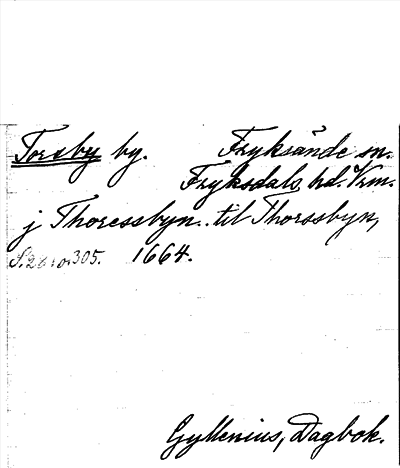 Torsby by. Fryksände sn.
Fryksdals hd. Vrm.
j Thoressbyn.. til Thorssbyn,
S. 305. 1664.
Gyllenius, Dagbok.